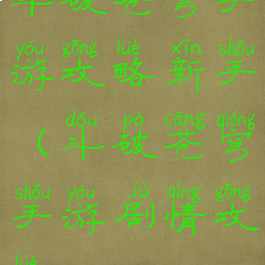 yóu gōng lüè xīn shǒu
游攻略新手
dòu pò cāng qióng
(斗破苍穹
shǒu yóu jù qíng gōng
手游剧情攻
lüè